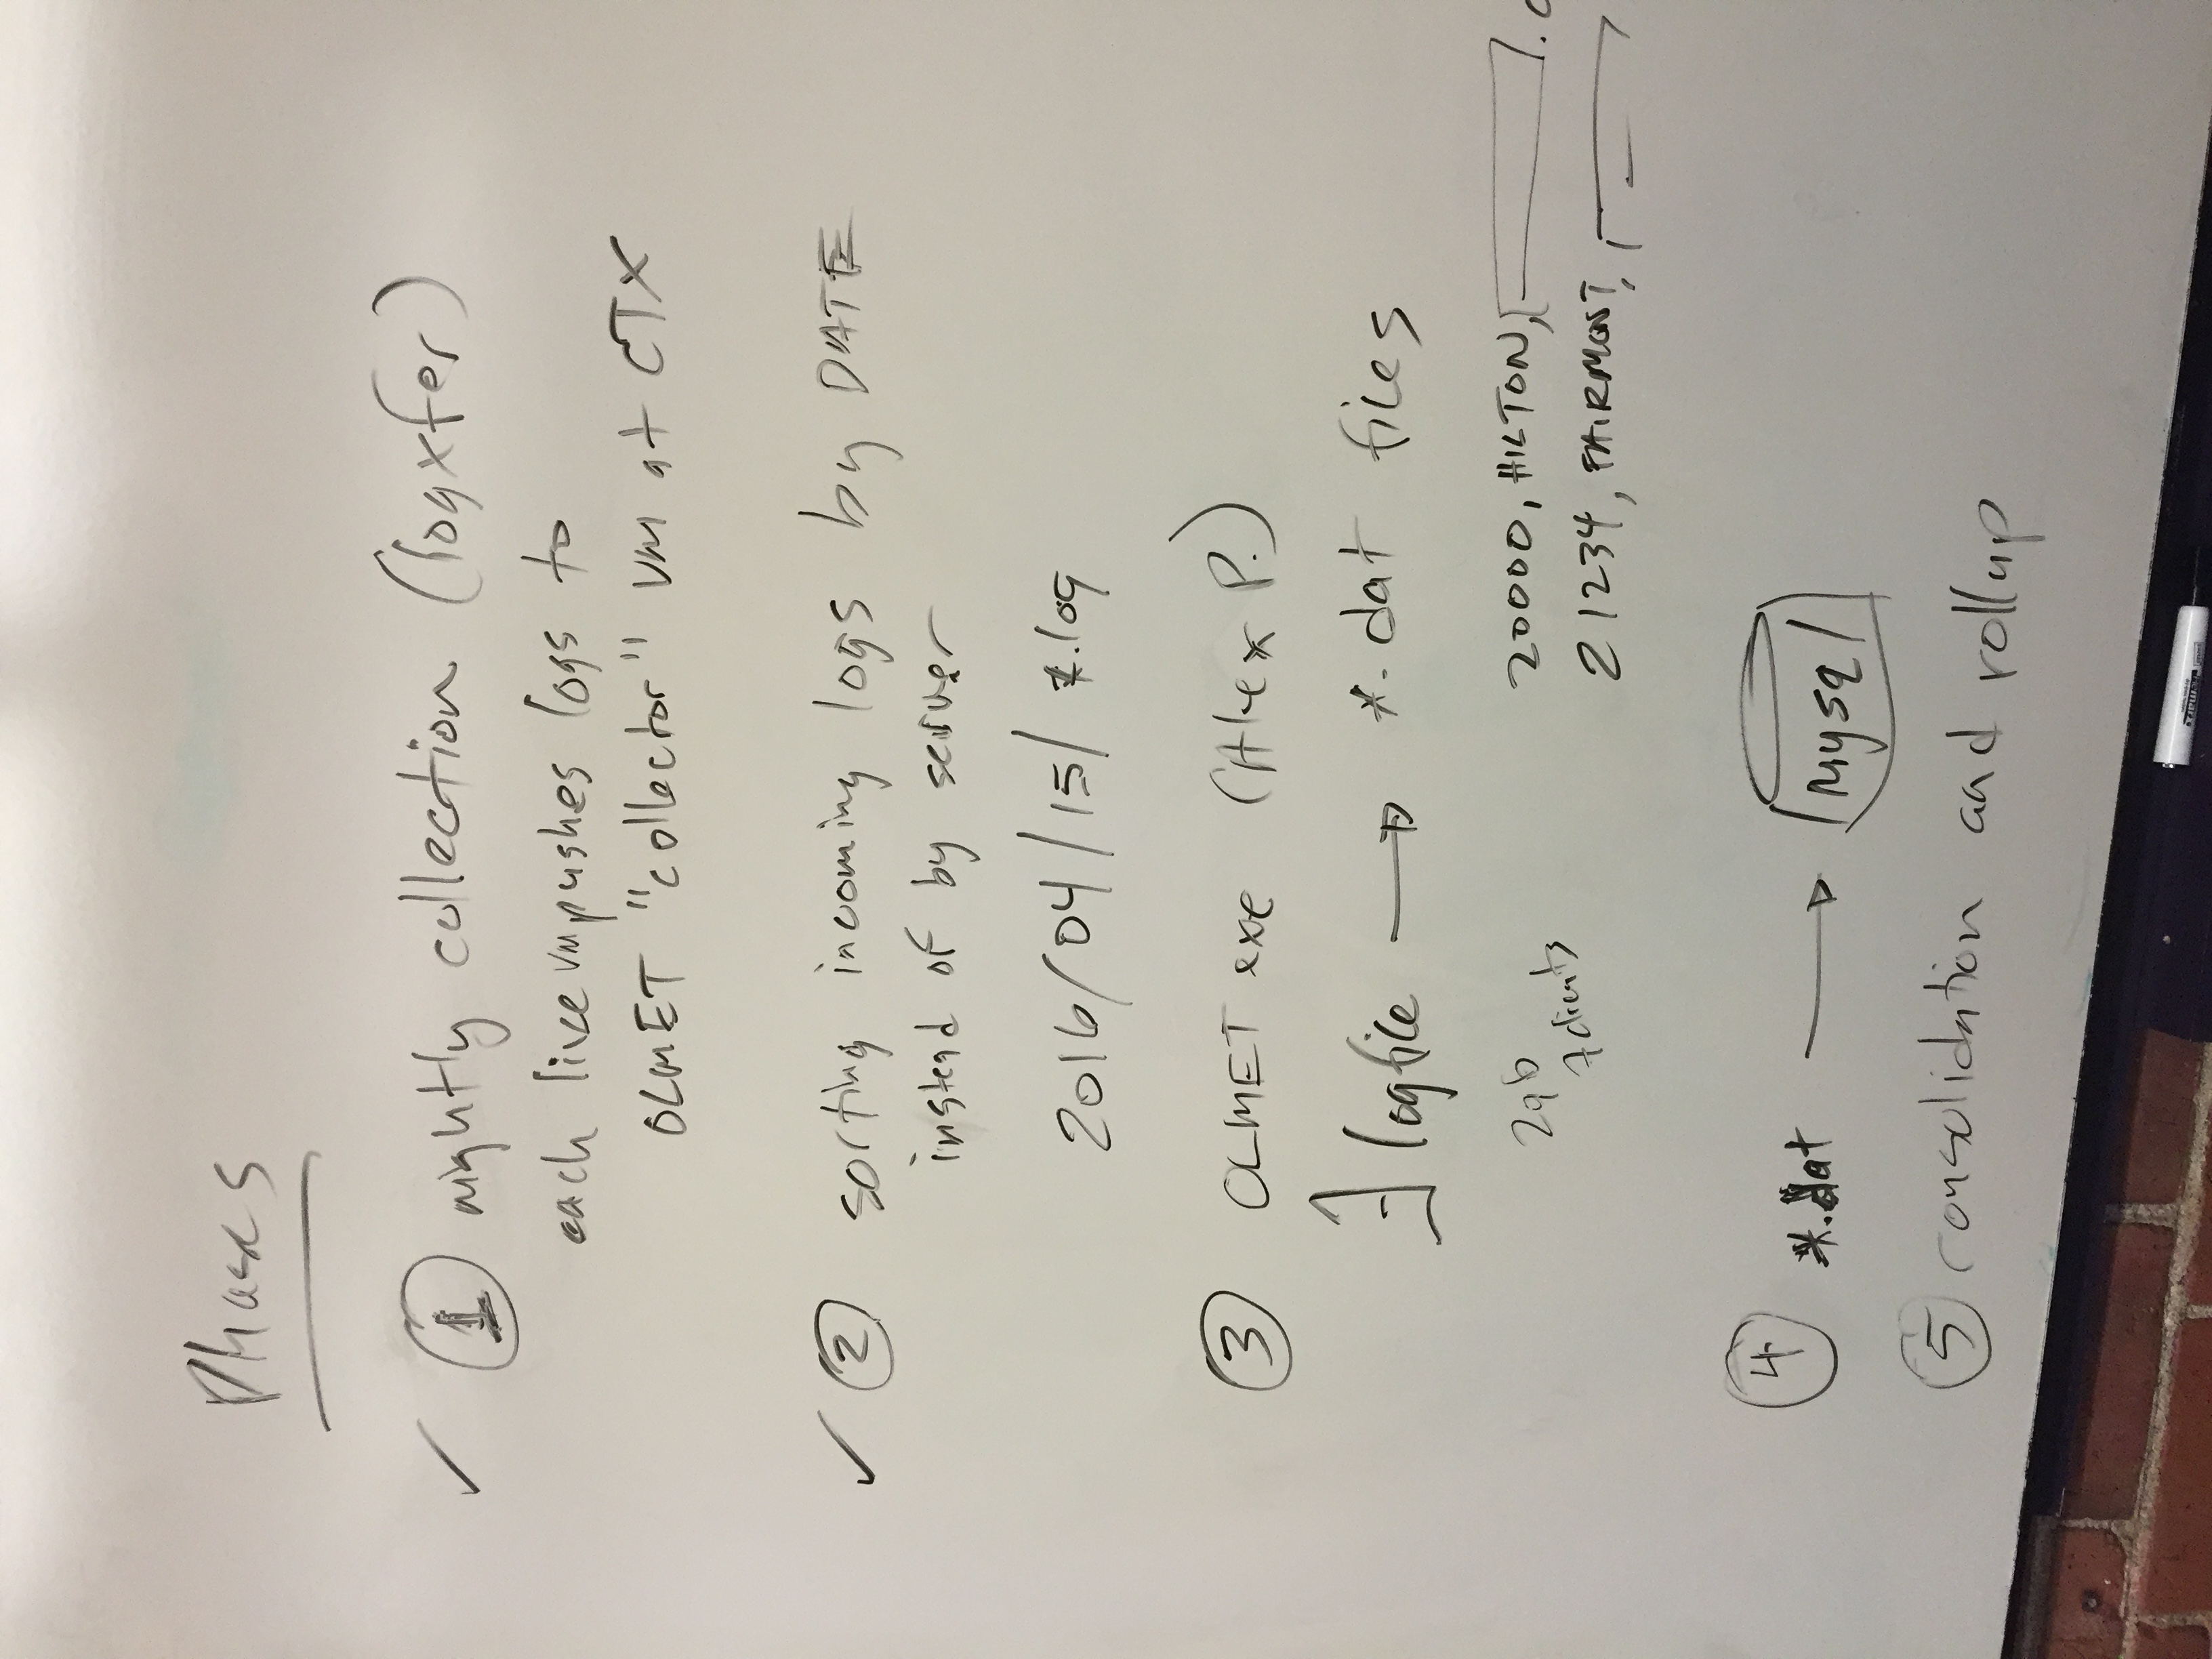 Phases
✓ ① nightly collection (logxfer)
each live vm pushes logs to
OLMET "collector" vm at CTX
✓ ② sorting incoming logs by DATE
instead of by server
2016/04/15/ *.log
③ OLMET exe (Alex P.)
logfile → *.dat files
20000, HILTON,
21234, FAIRMONT,
④ *.dat → mysql
⑤ consolidation and rollup